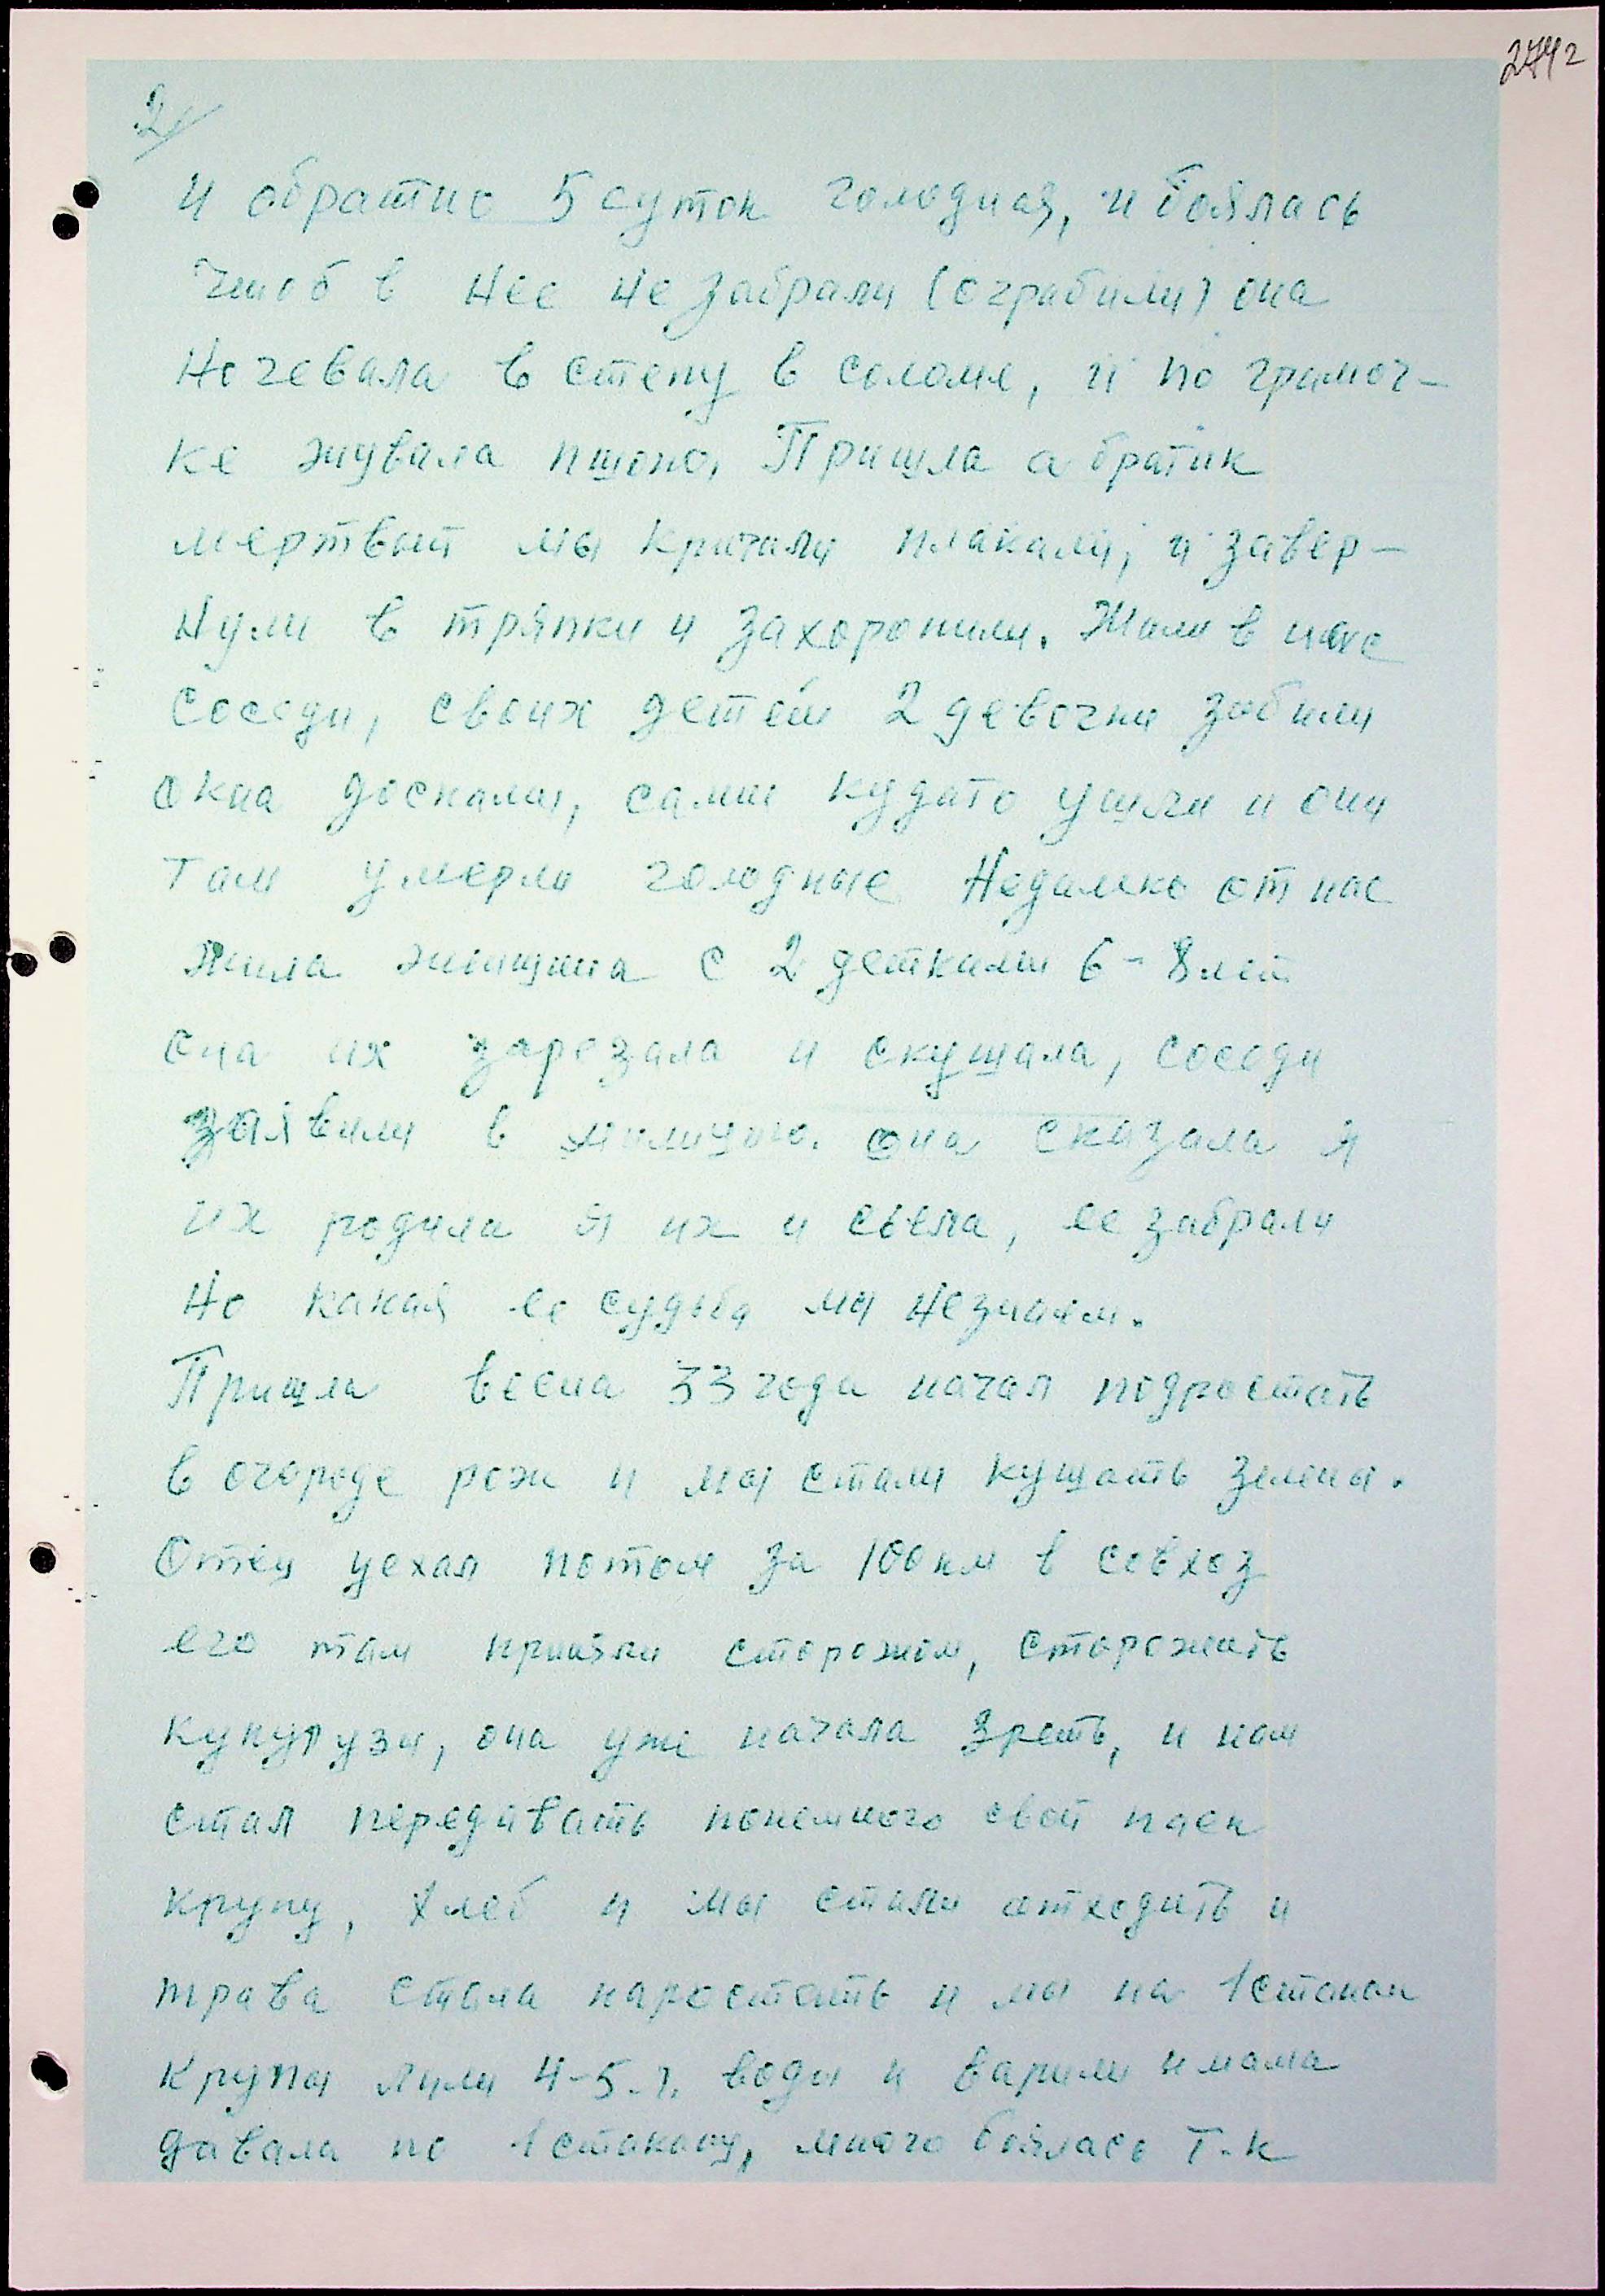 2/
и обратно 5 суток голодная, и боялась
чтоб в нее не забрали (ограбили) она
ночевала в степу в соломе, и по грамоч-
ке жувала пшоно. Пришла а братик
мертвый мы кричали плакали, и завер-
нули в тряпки и захоронили. Жили в нас
соседи, своих детей 2 девочки забили
окна досками, сами кудато ушли и они
там умерли голодные Недалеко от нас
жила женщина с 2 детками 6-8 лет
она их зарезала и скушала, соседи
заявили в милицию. она сказала я
их родила я их и съела, ее забрали
но какая ее судьба мы незнаем.
Пришла весна 33 года начал подростать
в огороде рожь и мы стали кушать зелень.
Отец уехал потом за 100 км в совхоз
его там приняли сторожом, сторожить
кукурузы, она уже начала зреть, и нам
стал передавать понемного свой паек
крупу, хлеб и мы стали отходить и
трава стала наростать и мы на 1 стакан
крупы лили 4-5 л. воды и варили и мама
давала по 1 стакану, много боялась т.к